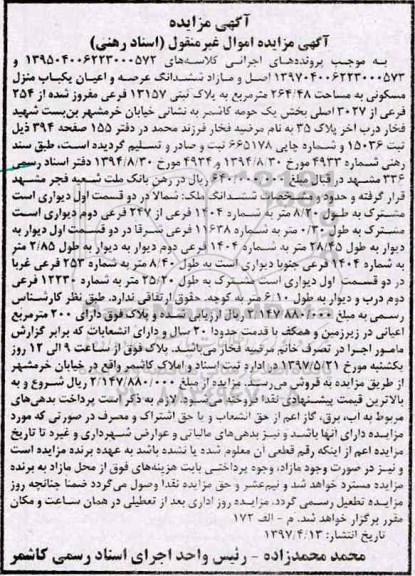 آگهی مزایده
آگهی مزایده اموال غیرمنقول (اسناد رهنی)
به موجب پرونده‌های اجرائی کلاسه‌های ۱۳۹۵۰۴۰۰۶۲۲۳۰۰۰۵۷۳ و
۱۳۹۷۰۴۰۰۶۲۲۳۰۰۰۵۷۳ اصل و مازاد ششدانگ عرصه و اعیان یکباب منزل
مسکونی به مساحت ۲۶۴/۴۸ مترمربع به پلاک ثبتی ۱۳۱۵۷ فرعی مفروز شده از ۲۵۴
فرعی از ۳۰۲۷ اصلی بخش یک حومه کاشمر به نشانی خیابان خرمشهر بن‌بست شهید
فخار درب آخر پلاک ۳۵ به نام مرضیه فخار فرزند محمد در دفتر ۱۵۵ صفحه ۳۹۴ ذیل
ثبت ۱۵۰۳۶ و شماره چاپی ۶۶۵۱۷۸ ثبت و صادر و تسلیم گردیده است، طبق سند
رهنی شماره ۴۹۳۳ مورخ ۱۳۹۴/۸/۳۰ و ۴۹۳۴ مورخ ۱۳۹۴/۸/۳۰ دفتر اسناد رسمی
۳۳۶ مشهد در قبال مبلغ ۶۴۰/۰۰۰/۰۰۰ ریال در رهن بانک ملت شعبه فجر مشهد
قرار گرفته و حدود و مشخصات ششدانگ ملک: شمالا در دو قسمت اول دیواری است
مشترک به طول ۸/۲۰ متر به شماره ۱۴۰۴ فرعی از ۲۴۷ فرعی دوم دیواری است
مشترک به طول ۰/۳۰ متر به شماره ۱۱۶۳۸ فرعی شرقا در دو قسمت اول دیوار به
دیوار به طول ۲۸/۴۵ متر به شماره ۱۴۰۴ فرعی دوم دیوار به دیوار به طول ۲/۸۵ متر
به شماره ۱۴۰۴ فرعی جنوبا دیواری است به طول ۸/۴۰ متر به شماره ۲۵۳ فرعی غربا
در دو قسمت اول دیواری است مشترک به طول ۲۵/۲۰ متر به شماره ۱۲۲۳۰ فرعی
دوم درب و دیوار به طول ۶/۱۰ متر به کوچه. حقوق ارتفاقی ندارد. طبق نظر کارشناس
رسمی به مبلغ ۲/۱۴۷/۸۸۰/۰۰۰ ریال ارزیابی شده و پلاک فوق دارای ۲۰۰ مترمربع
اعیانی در زیرزمین و همکف با قدمت حدودا ۳۰ سال و دارای انشعابات که برابر گزارش
مامور اجرا در تصرف خانم مرضیه فخار می‌باشد. پلاک فوق از ساعت ۹ الی ۱۲ روز
یکشنبه مورخ ۱۳۹۷/۵/۲۱ در اداره ثبت اسناد و املاک کاشمر واقع در خیابان خرمشهر
از طریق مزایده به فروش می‌رسد. مزایده از مبلغ ۲/۱۴۷/۸۸۰/۰۰۰ ریال شروع و به
بالاترین قیمت پیشنهادی نقدا فروخته می‌شود. لازم به ذکر است پرداخت بدهی‌های
مربوط به آب، برق، گاز اعم از حق انشعاب و یا حق اشتراک و مصرف در صورتی که مورد
مزایده دارای آنها باشد و نیز بدهی‌های مالیاتی و عوارض شهرداری و غیره تا تاریخ
مزایده اعم از اینکه رقم قطعی آن معلوم شده یا نشده باشد به عهده برنده مزایده است
و نیز در صورت وجود مازاد، وجوه پرداختی بابت هزینه‌های فوق از محل مازاد به برنده
مزایده مسترد خواهد شد و نیم‌عشر و حق مزایده نقدا وصول می‌گردد ضمنا چنانچه روز
مزایده تعطیل رسمی گردد، مزایده روز اداری بعد از تعطیلی در همان ساعت و مکان
مقرر برگزار خواهد شد. م - الف ۱۷۲
تاریخ انتشار: ۱۳۹۷/۰۴/۱۳
محمد محمدزاده - رئیس واحد اجرای اسناد رسمی کاشمر